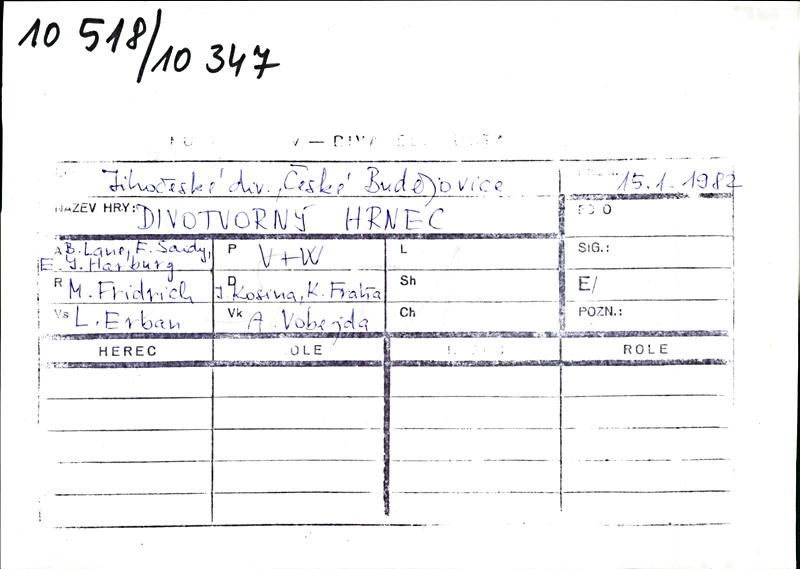 10 518/10 347
Jihočeské div., České Budějovice 15.1.1982
NÁZEV HRY: DIVOTVORNÝ HRNEC
A B. Lane, F. Saidy, E. Y. Harburg P V+W L SIG.:
R M. Fridrich D J. Kosina, K. Fraňa Sh E/
Vs L. Erban Vk A. Vobejda Ch POZN.:
HEREC OLE ROLE